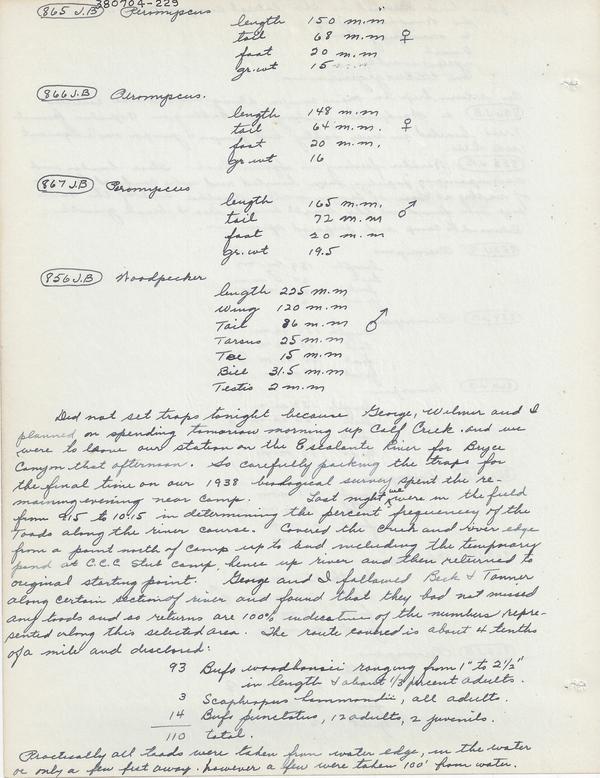 380704-229
865 J.B Peromyscus
length 150 m.m
tail 68 m.m ♀
foot 20 m.m
gr.wt 15
866 J.B Peromyscus.
length 148 m.m
tail 64 m.m. ♀
foot 20 m.m.
gr.wt 16
867 J.B Peromyscus
length 165 m.m. ♂
tail 72 m.m
foot 20 m.m
gr.wt 19.5
856 J.B Woodpecker
length 225 m.m
Wing 120 m.m
Tail 86 m.m ♂
Tarsus 25 m.m
Toe 15 m.m
Bill 31.5 m.m
Testis 2 m.m
Did not set traps tonight because George, Wilmer and I
planned on spending tomorrow morning up Calf Creek and we
were to leave our station on the Escalante River for Bryce
Canyon that afternoon. So carefully packing the traps for
the final time on our 1938 biological survey spent the re-
maining evening near camp. Last night we were in the field
from 9:15 to 10:15 in determining the percent frequency of the
toads along the river course. Covered the creek and river edge
from a point north of camp up to bend including the temporary
pond at C.C.C. camp, hence up river and then returned to
original starting point. George and I followed Beck & Tanner
along certain section of river and found that they had not missed
any toads and so returns are 100% indicative of the numbers repre-
sented along this selected area. The route covered is about 4 tenths
of a mile and disclosed:
93 Bufo woodhousii ranging from 1" to 2½"
in length & about ⅓ percent adults.
3 Scaphiopus hammondii, all adults.
14 Bufo punctatus, 12 adults, 2 juvenils.
110 total.
Practically all toads were taken from water edge, in the water
or only a few feet away. however a few were taken 100' from water.